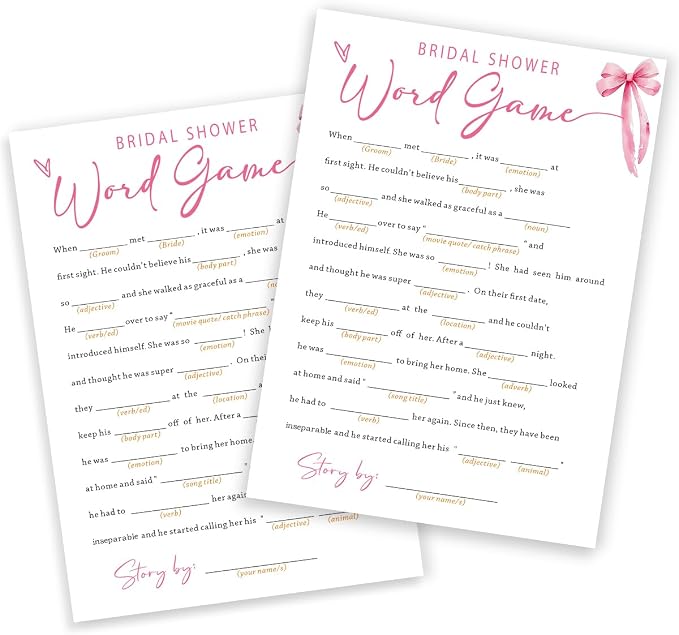 BRIDAL SHOWER
Word Game
When ________ met ________ , it was ________ at
(Groom) (Bride) (emotion)
first sight. He couldn't believe his ________ , she was
(body part)
so ________ and she walked as graceful as a ________
(adjective) (no
He ________ over to say " ________
(verb/ed) (movie quote/ catch phrase)
introduced himself. She was so ________ ! She h
(emotion)
and thought he was super ________ . On their
(adjective)
they ________ at the ________
(verb/ed) (location)
keep his ________ off of her. After a
(body part)
he was ________ to bring her home.
(emotion)
at home and said" ________
(song title)
he had to ________ her again
(verb)
inseparable and he started calling her his " ________ ________
(adjective) (animal)
Story by: ________
(your name/s)
BRIDAL SHOWER
Word Game
When ________ met ________ , it was ________ at
(Groom) (Bride) (emotion)
first sight. He couldn't believe his ________ , she was
(body part)
so ________ and she walked as graceful as a ________
(adjective) (noun)
He ________ over to say " ________ " and
(verb/ed) (movie quote/ catch phrase)
introduced himself. She was so ________ ! She had seen him around
(emotion)
and thought he was super ________ . On their first date,
(adjective)
they ________ at the ________ and he couldn't
(verb/ed) (location)
keep his ________ off of her. After a ________ night.
(body part) (adjective)
he was ________ to bring her home. She ________ looked
(emotion) (adverb)
at home and said " ________ " and he just knew,
(song title)
he had to ________ her again. Since then, they have been
(verb)
inseparable and he started calling her his " ________ ________ "
(adjective) (animal)
Story by: ________
(your name/s)